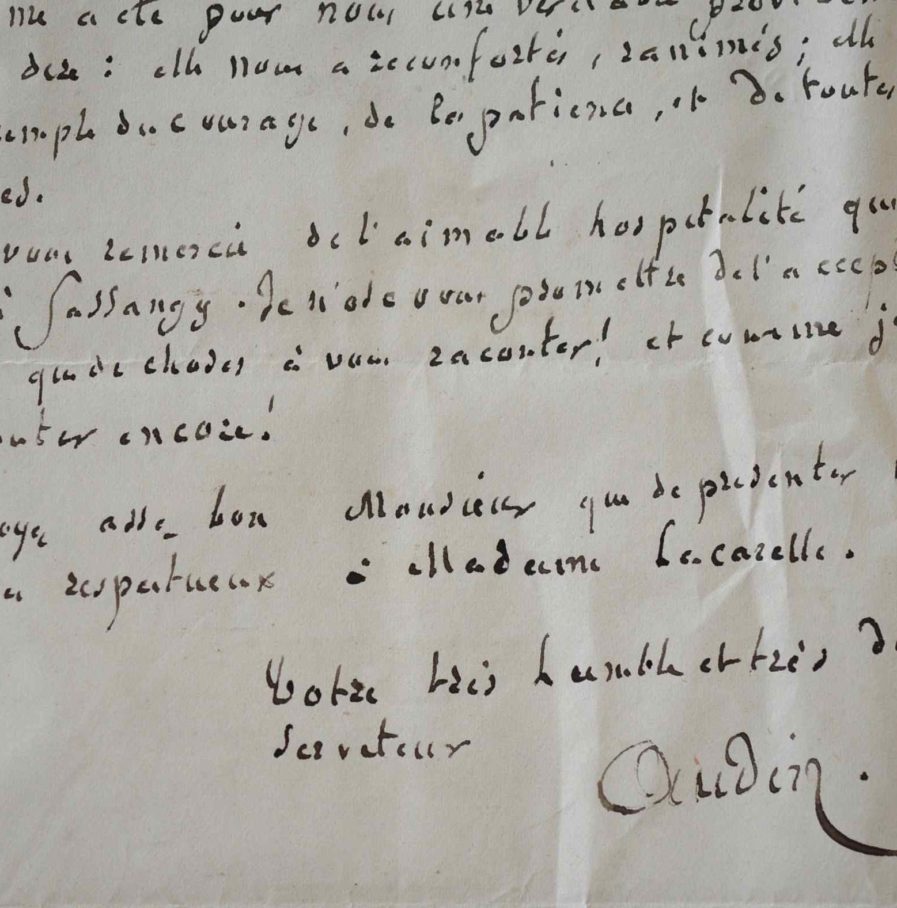 me a été pour nous une véritable
dre : elle nous a réconfortés, ranimés ; elle
emple du courage, de la patience, et de toutes
es.
vous remercie de l'aimable hospitalité que
à Sassangy. Je n'ose vous promettre de l'accep
que de choses à vous raconter ! et comme j'
outer encore !
oyez assez bon Monsieur que de présenter
respectueux à Madame Lacarelle.
Votre très humble et très d
serviteur
Audin.